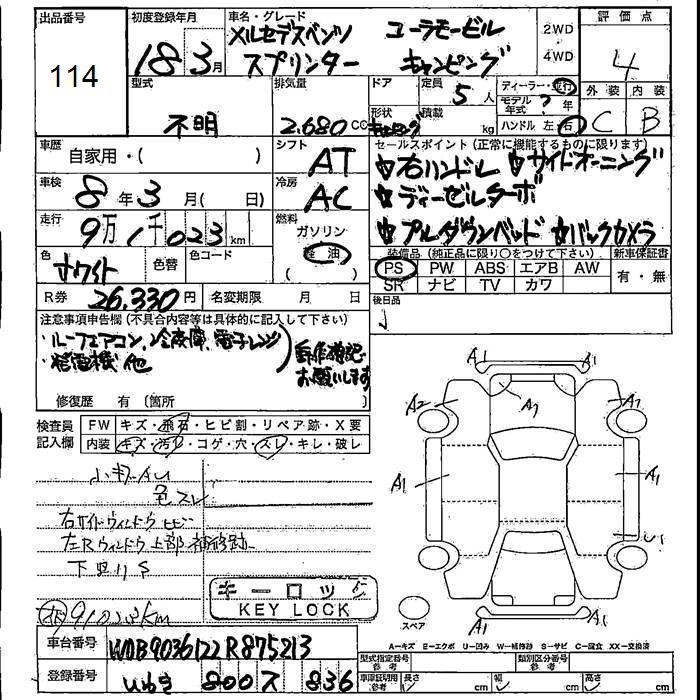 出品番号
114
初度登録年月
18 3月
車名・グレード
メルセデスベンツ ユーラモービル
スプリンター キャンピング
2WD
4WD
評価点
4
型式
不明
排気量
2.680 CC
ドア
形状
キャンピング
定員
5人
積載
kg
ディーラー・並行
モデル年式 ? 年
ハンドル 左・右
外装 内装
C B
車歴
自家用・( )
シフト
AT
セールスポイント (正常に機能するものに限ります)
☆右ハンドル ☆サイドオーニング
☆ディーゼルターボ
☆プルダウンベッド ☆バックカメラ
車検
8年3月( 日)
冷房
AC
走行
9万1千023km
燃料
ガソリン
軽油
色
ホワイト
色替
色コード
装備品 (純正品に限り○をつけて下さい)
PS PW ABS エアB AW
SR ナビ TV カワ
新車保証書
有・無
R券 26,330円
名変期限 月 日
後日品
注意事項申告欄 (不具合内容等は具体的に記入して下さい)
・ルーフエアコン、冷蔵庫、電子レンジ
・発電機 他
動作確認お願いします
修復歴 有 (箇所 )
検査員記入欄
FW キズ・飛石・ヒビ割・リペア跡・X要
内装 キズ・汚レ・コゲ・穴・スレ・キレ・破レ
小キズAU
色スレ
右サイドウィルドウ ヒビ
左Rウィルドウ上部補修跡
下廻りS
91023KM
キーロック
KEY LOCK
A1 A1
A2 A1 A2
A1 A1
U1
A1 A1
スペア
A−キズ E−エクボ U−凹み W−補修跡 S−サビ C−腐食 XX−交換済
車台番号 WDB9036122R875213
登録番号 いわき 800 ス 836
型式指定番号
参考
類別区分番号
参考
車庫証明用
参考
長さ cm 幅 cm 高さ cm